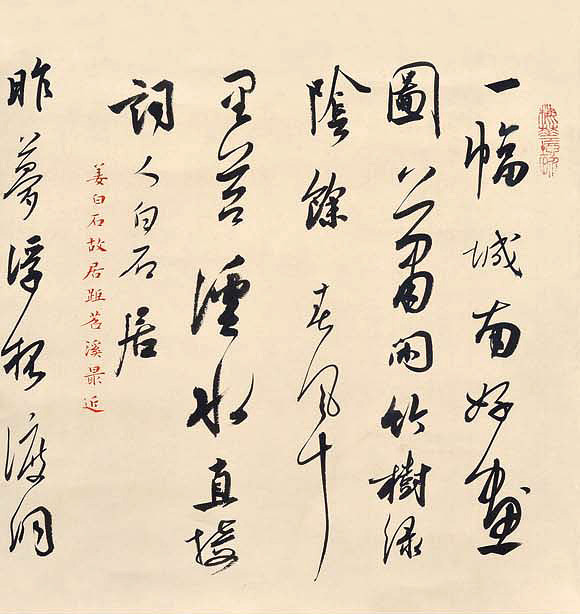 一幅城南好畫
圖蕭閒竹樹綠
陰餘春風十
里苕溪水直接
詞人白石居
姜白石故居距苕溪最近
昨夢浮槎渡洞